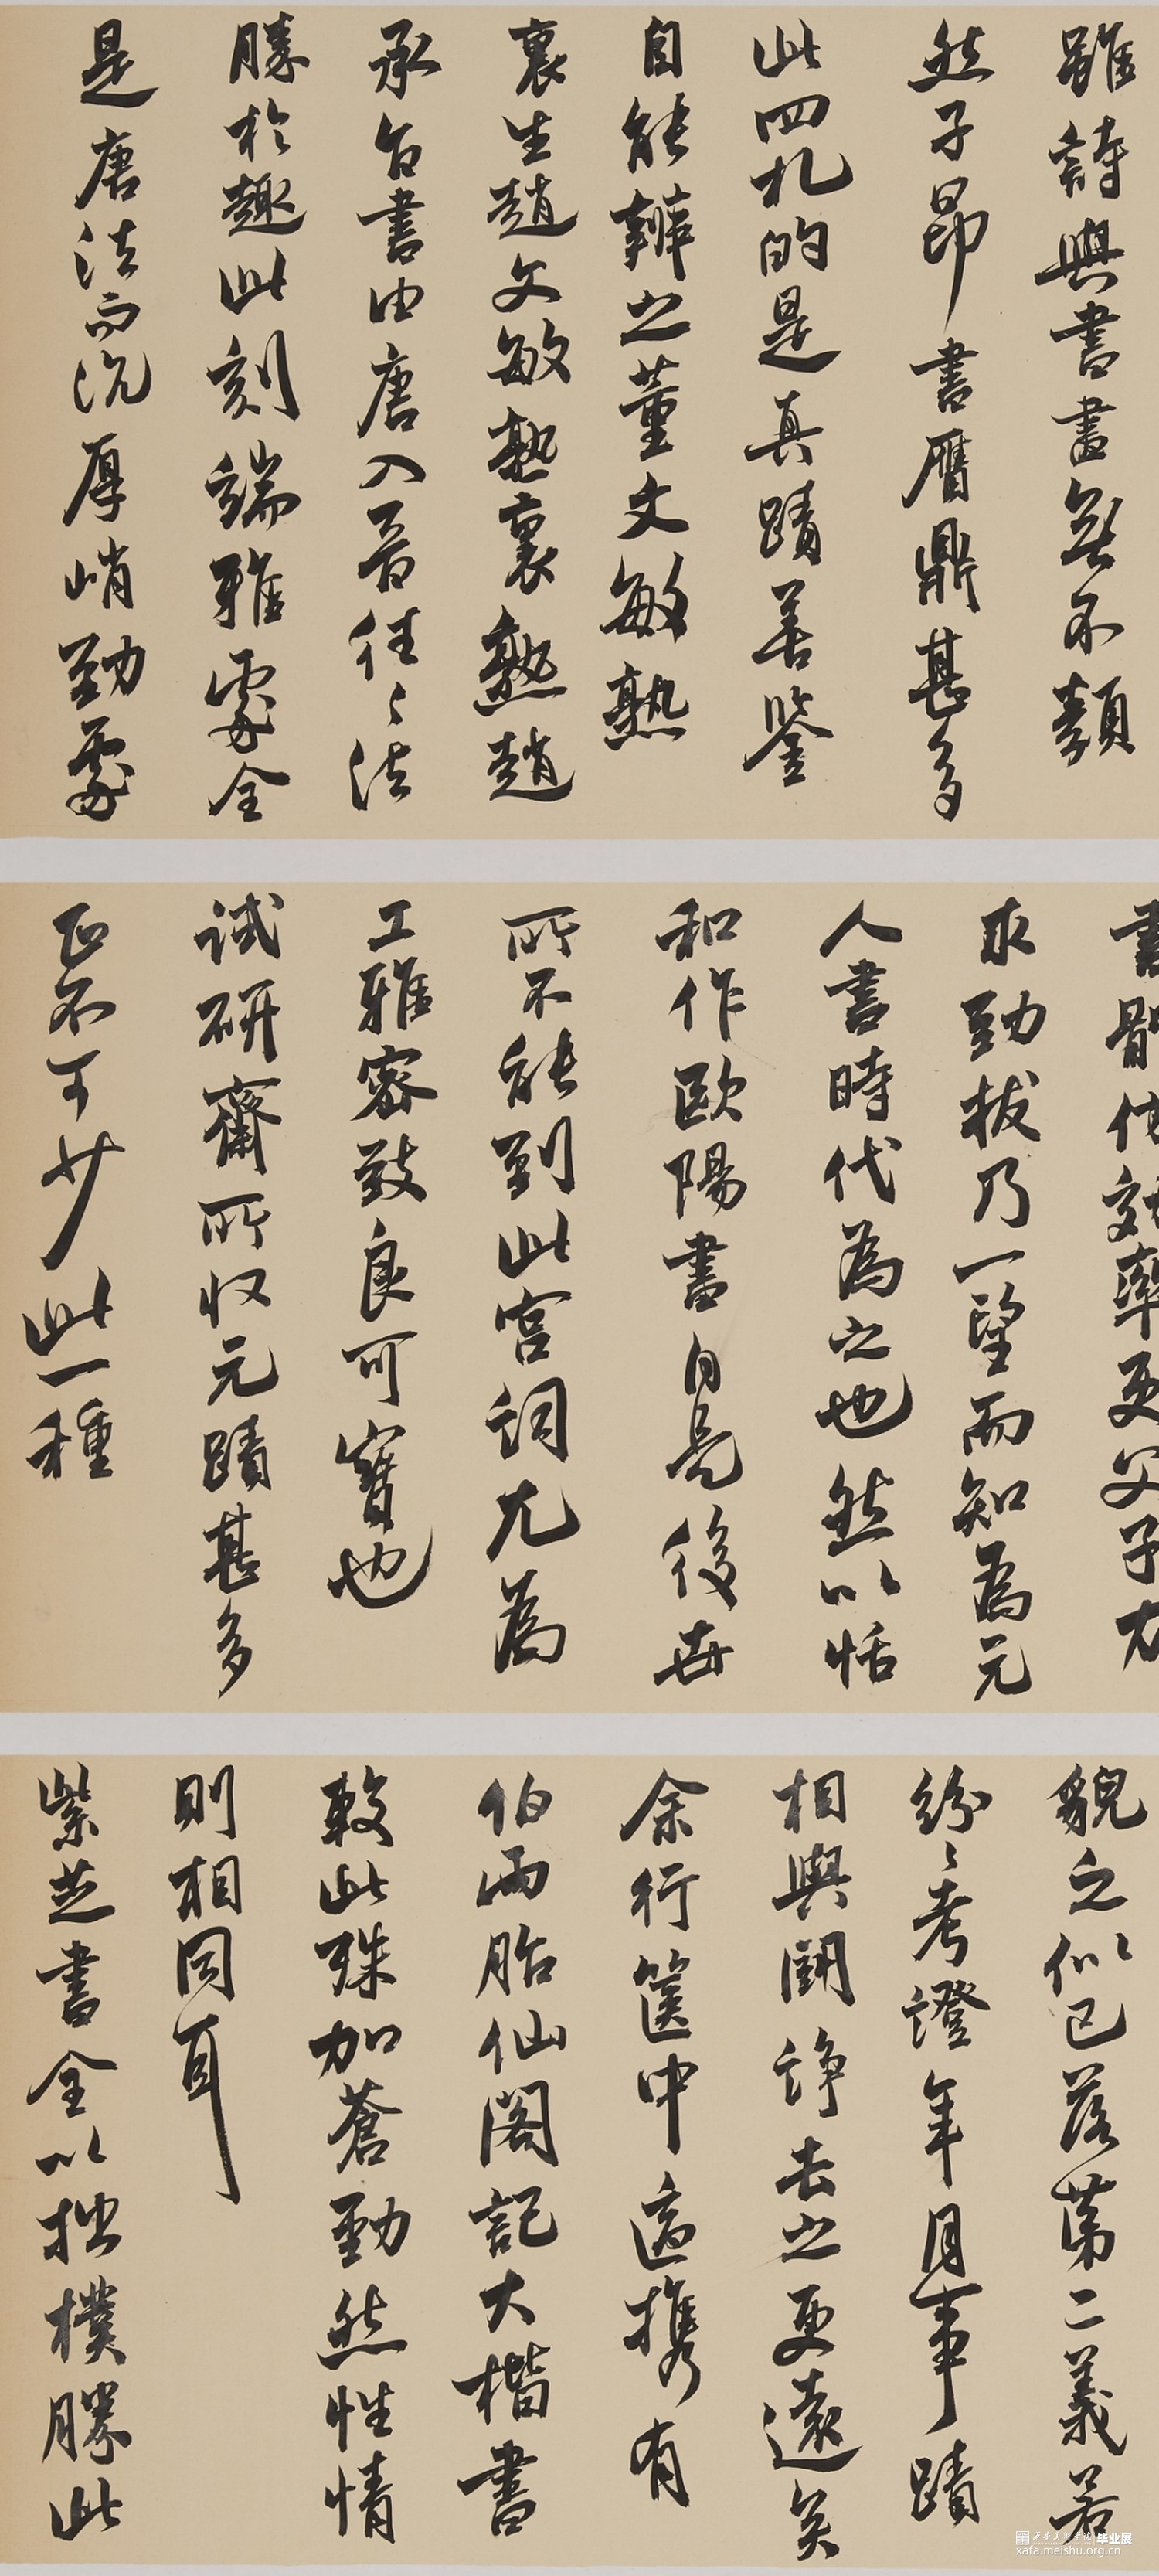 雖詩與書畫無不類
然子昂書贗鼎甚多
此四札的是真蹟善鑒
自能辨之董文敏熟
裏生趙文敏熟裏熟趙
承旨書由唐入晉往〻法
勝於趣此刻端雅處全
是唐法而沉厚峭勁處
書體仿效率更父子尤
求勁拔乃一望而知為元
人書時代為之也然以恬
和作歐陽書自是後世
所不能到此宮詞尤為
工雅密致良可寶也
試研齋所收元蹟甚多
正不可少此一種
貌之似已落第二義若
紛〻考證年月事蹟
相與鬭諍去之更遠矣
余行篋中適攜有
伯雨胎仙閣記大楷書
較此殊加蒼勁然性情
則相同耳
紫芝書全以拙樸勝此
毕业展
xafa.meishu.org.cn